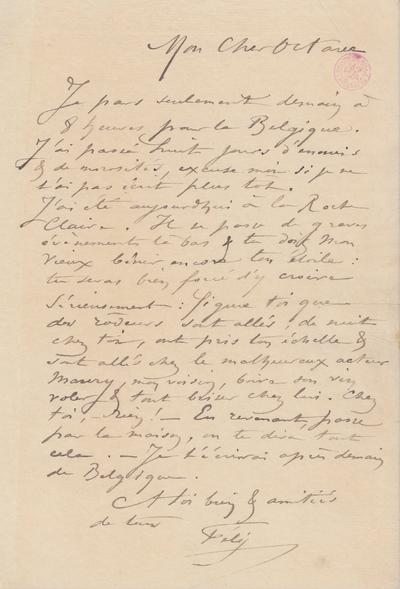 Mon Cher Octave
Je pars seulement demain à
8 heures pour la Belgique.
J'ai passé huit jours d'ennuis
& de morosités, excuse moi si je ne
t'ai pas écrit plus tôt.
J'ai été aujourd'hui à la Roche
Claire. Il se passe de graves
évènements là bas & tu dois mon
vieux bénir encore ton étoile :
tu seras bien forcé d'y croire
sérieusement : figure toi que
des rôdeurs sont allés, de nuit
chez toi, ont pris ton échelle &
sont allés chez le malheureux acteur
Maury, mon voisin, boire son vin
voler & tout briser chez lui. Chez
toi, – rien! – En revenant, passe
par la maison, on te dira tout
cela. – Je t'écrirai après demain
de Belgique.
A toi bien & amitiés
de tous
Fély